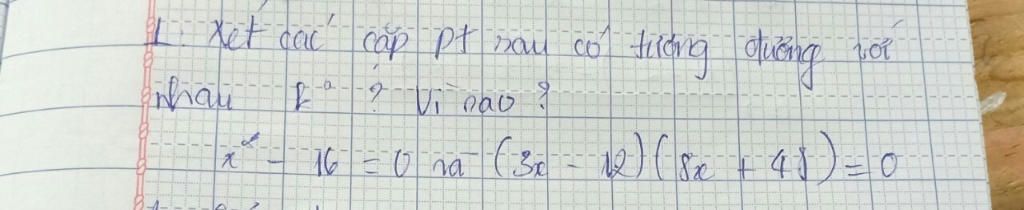 1. Xét các cặp pt sau có tương đương với
nhau k° ? Vì sao ?
x² - 16 = 0 và (3x - 12)(8x + 48) = 0